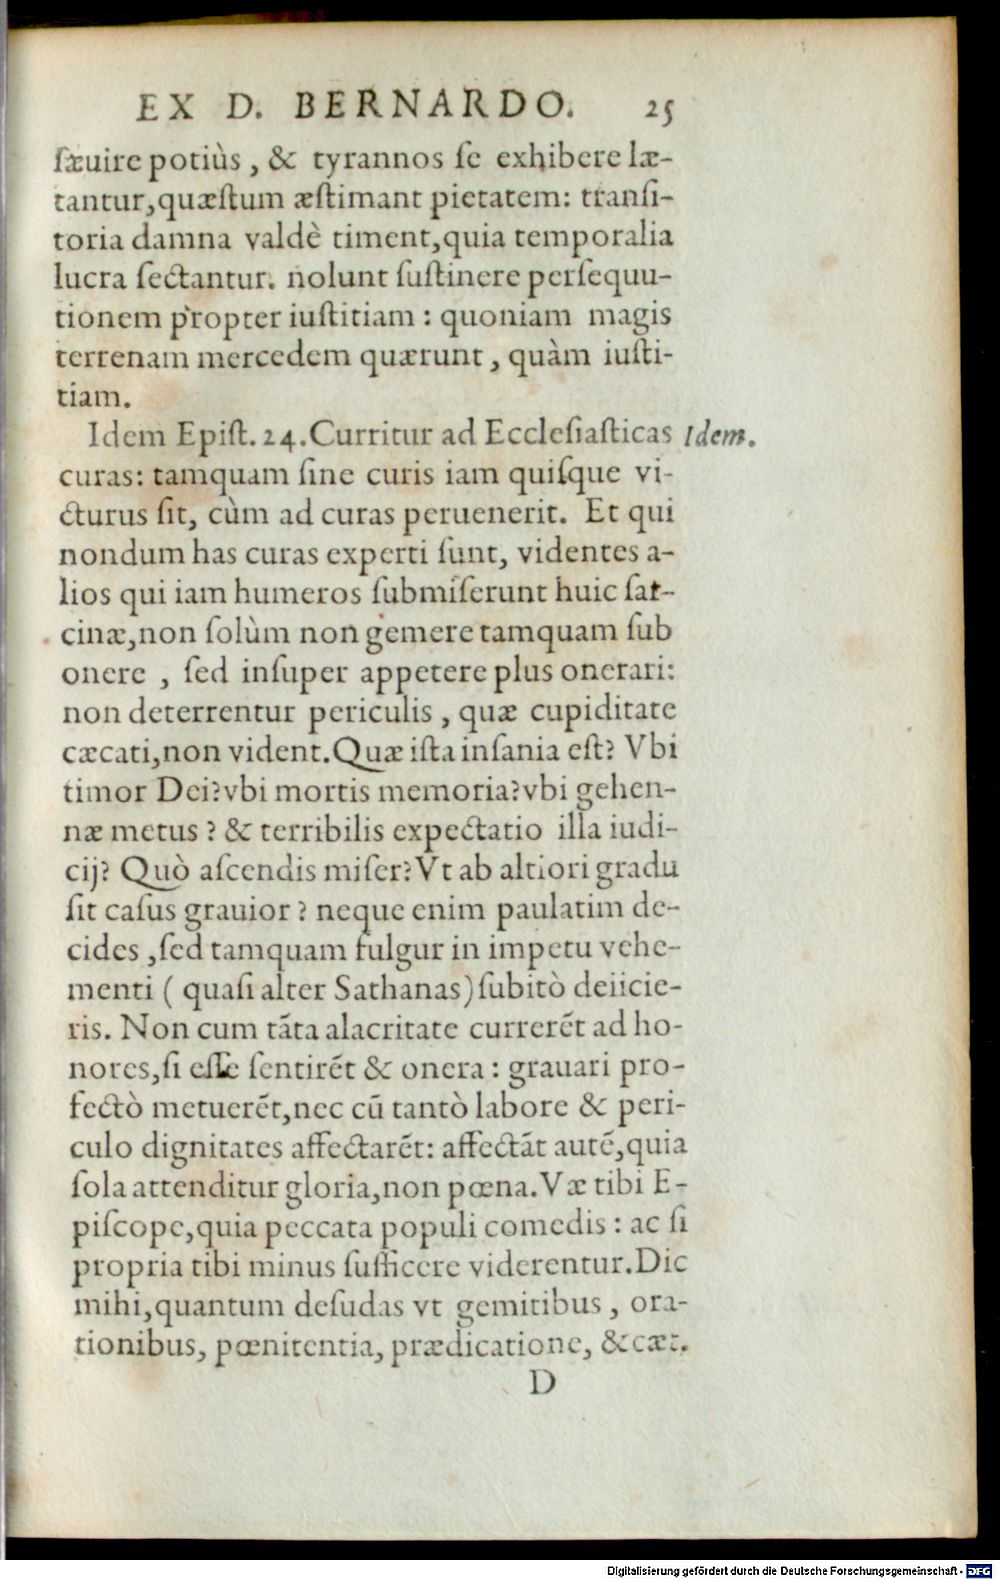 EX D. BERNARDO. 25
ſæuire potiùs, & tyrannos ſe exhibere læ-
tantur, quæſtum æſtimant pietatem: tranſi-
toria damna valdè timent, quia temporalia
lucra ſectantur. nolunt ſuſtinere perſequu-
tionem propter iuſtitiam: quoniam magis
terrenam mercedem quærunt, quàm iuſti-
tiam.
Idem Epiſt. 24. Curritur ad Eccleſiaſticas Idem.
curas: tamquam ſine curis iam quiſque vi-
cturus ſit, cùm ad curas peruenerit. Et qui
nondum has curas experti ſunt, videntes a-
lios qui iam humeros ſubmiſerunt huic ſar-
cinæ, non ſolùm non gemere tamquam ſub
onere, ſed inſuper appetere plus onerari:
non deterrentur periculis, quæ cupiditate
cæcati, non vident. Quæ iſta inſania eſt? Vbi
timor Dei? vbi mortis memoria? vbi gehen-
næ metus? & terribilis expectatio illa iudi-
cij? Quò aſcendis miſer? Vt ab altiori gradu
ſit caſus grauior? neque enim paulatim de-
cides, ſed tamquam fulgur in impetu vehe-
menti (quaſi alter Sathanas) ſubitò deiicie-
ris. Non cum tāta alacritate currerēt ad ho-
nores, ſi eſſe ſentirēt & onera: grauari pro-
fectò metuerēt, nec cū tantò labore & peri-
culo dignitates affectarēt: affectāt autē, quia
ſola attenditur gloria, non pœna. Væ tibi E-
piſcope, quia peccata populi comedis: ac ſi
propria tibi minus ſufficere viderentur. Dic
mihi, quantum deſudas vt gemitibus, ora-
tionibus, pœnitentia, prædicatione, & cæt.
D
Digitalisierung gefördert durch die Deutsche Forschungsgemeinschaft - DFG